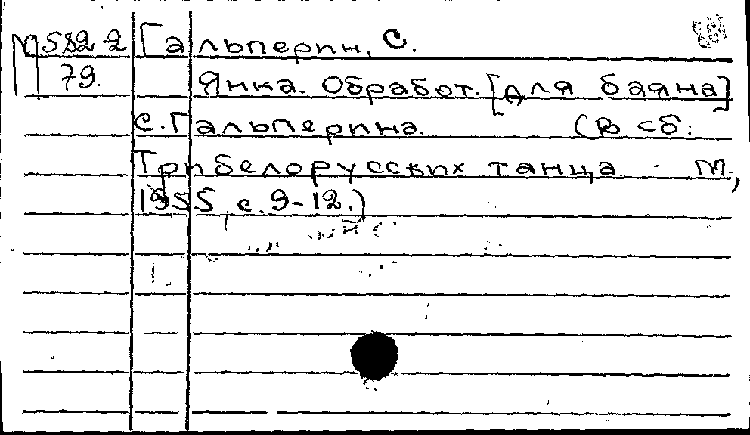 М582-2 Гальперин, С.
79. Янка. Обработ. [для баяна]
С. Гальперина. (В сб.:
Три белорусских танца М,
1955, с. 9-12.)